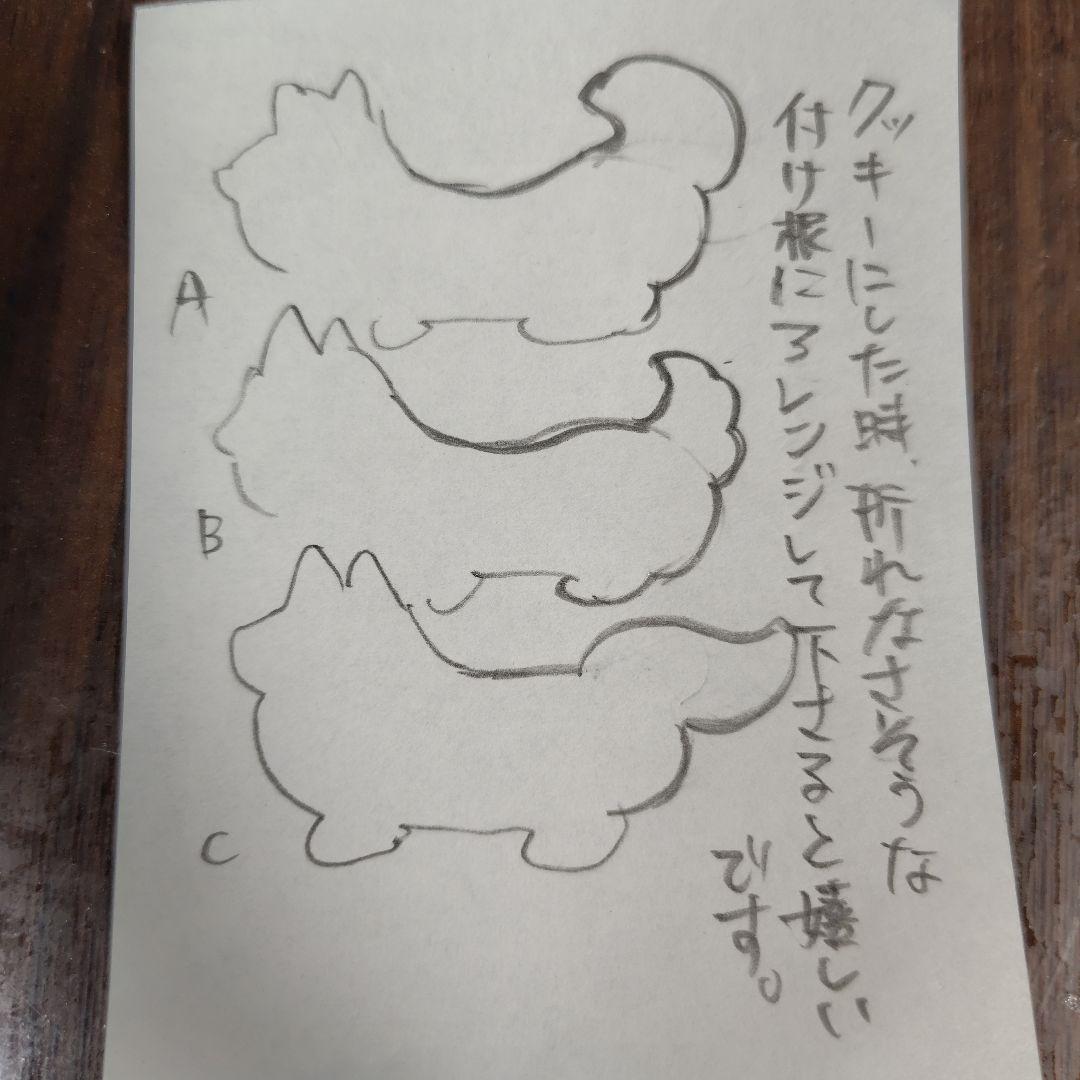 クッキーにした時、折れなさそうな
付け根にアレンジして下さると嬉しい
です。
A
B
C